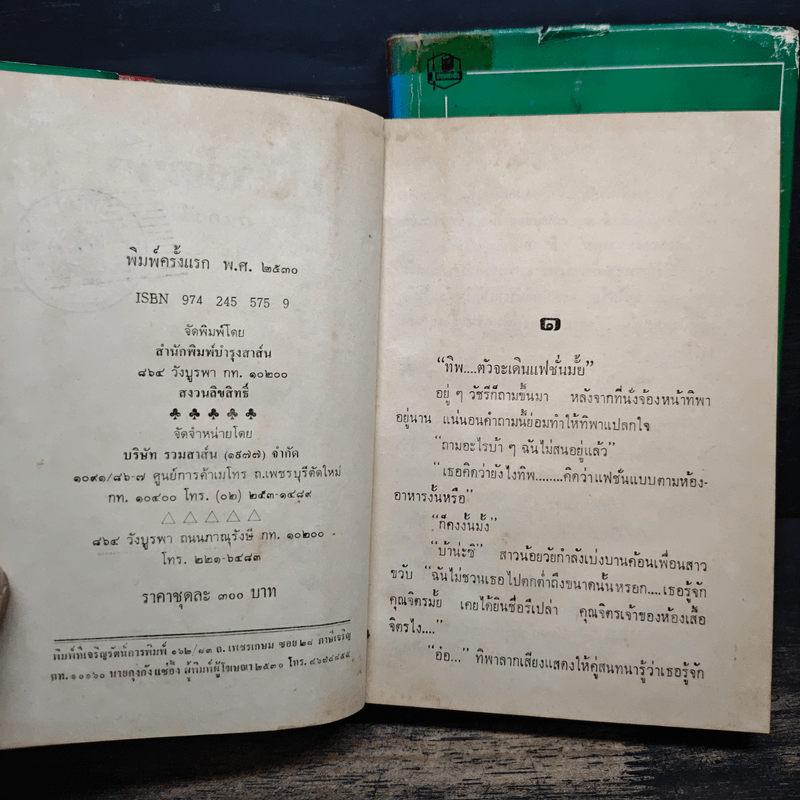 พิมพ์ครั้งแรก พ.ศ. ๒๕๓๐
ISBN 974 245 575 9
จัดพิมพ์โดย
สำนักพิมพ์บำรุงสาส์น
๘๖๔ วังบูรพา กท. ๑๐๒๐๐
สงวนลิขสิทธิ์
จัดจำหน่ายโดย
บริษัท รวมสาส์น (๑๙๗๗) จำกัด
๑๐๙๑/๘๖-๗ ศูนย์การค้าเมโทร ถ.เพชรบุรีตัดใหม่
กท. ๑๐๔๐๐ โทร. (๐๒) ๒๕๓-๑๔๘๙
๘๖๔ วังบูรพา ถนนภาณุรังษี กท. ๑๐๒๐๐
โทร. ๒๒๑-๖๔๘๓
ราคาชุดละ ๓๐๐ บาท
พิมพ์ที่เจริญรัตน์การพิมพ์ ๑๖๒/๘๓ ถ.เพชรเกษม ซอย ๒๘ ภาษีเจริญ
กท. ๑๐๑๖๐ นายคุงกัง แซ่อึ้ง ผู้พิมพ์ผู้โฆษณา ๒๕๓๐ โทร.
๑
“ทิพ....ตัวจะเดินแฟชั่นมั้ย”
อยู่ ๆ วัชรีก็ถามขึ้นมา หลังจากที่นั่งจ้องหน้าทิพา
อยู่นาน แน่นอนคำถามนี้ย่อมทำให้ทิพาแปลกใจ
“ถามอะไรบ้า ๆ ฉันไม่สนอยู่แล้ว”
“เธอคิดว่ายังไงทิพ........คิดว่าแฟชั่นแบบตามห้อง-
อาหารงั้นหรือ”
“ก็คงงั้นมั้ง”
“บ้าน่ะซิ” สาวน้อยวัยกำลังเบ่งบานค้อนเพื่อนสาว
ขวับ “ฉันไม่ชวนเธอไปตกต่ำถึงขนาดนั้นหรอก....เธอรู้จัก
คุณจิตรมั้ย เคยได้ยินชื่อรึเปล่า คุณจิตรเจ้าของห้องเสื้อ
จิตรไง....”
“อ๋อ...” ทิพาลากเสียงแสดงให้คู่สนทนารู้ว่าเธอรู้จัก